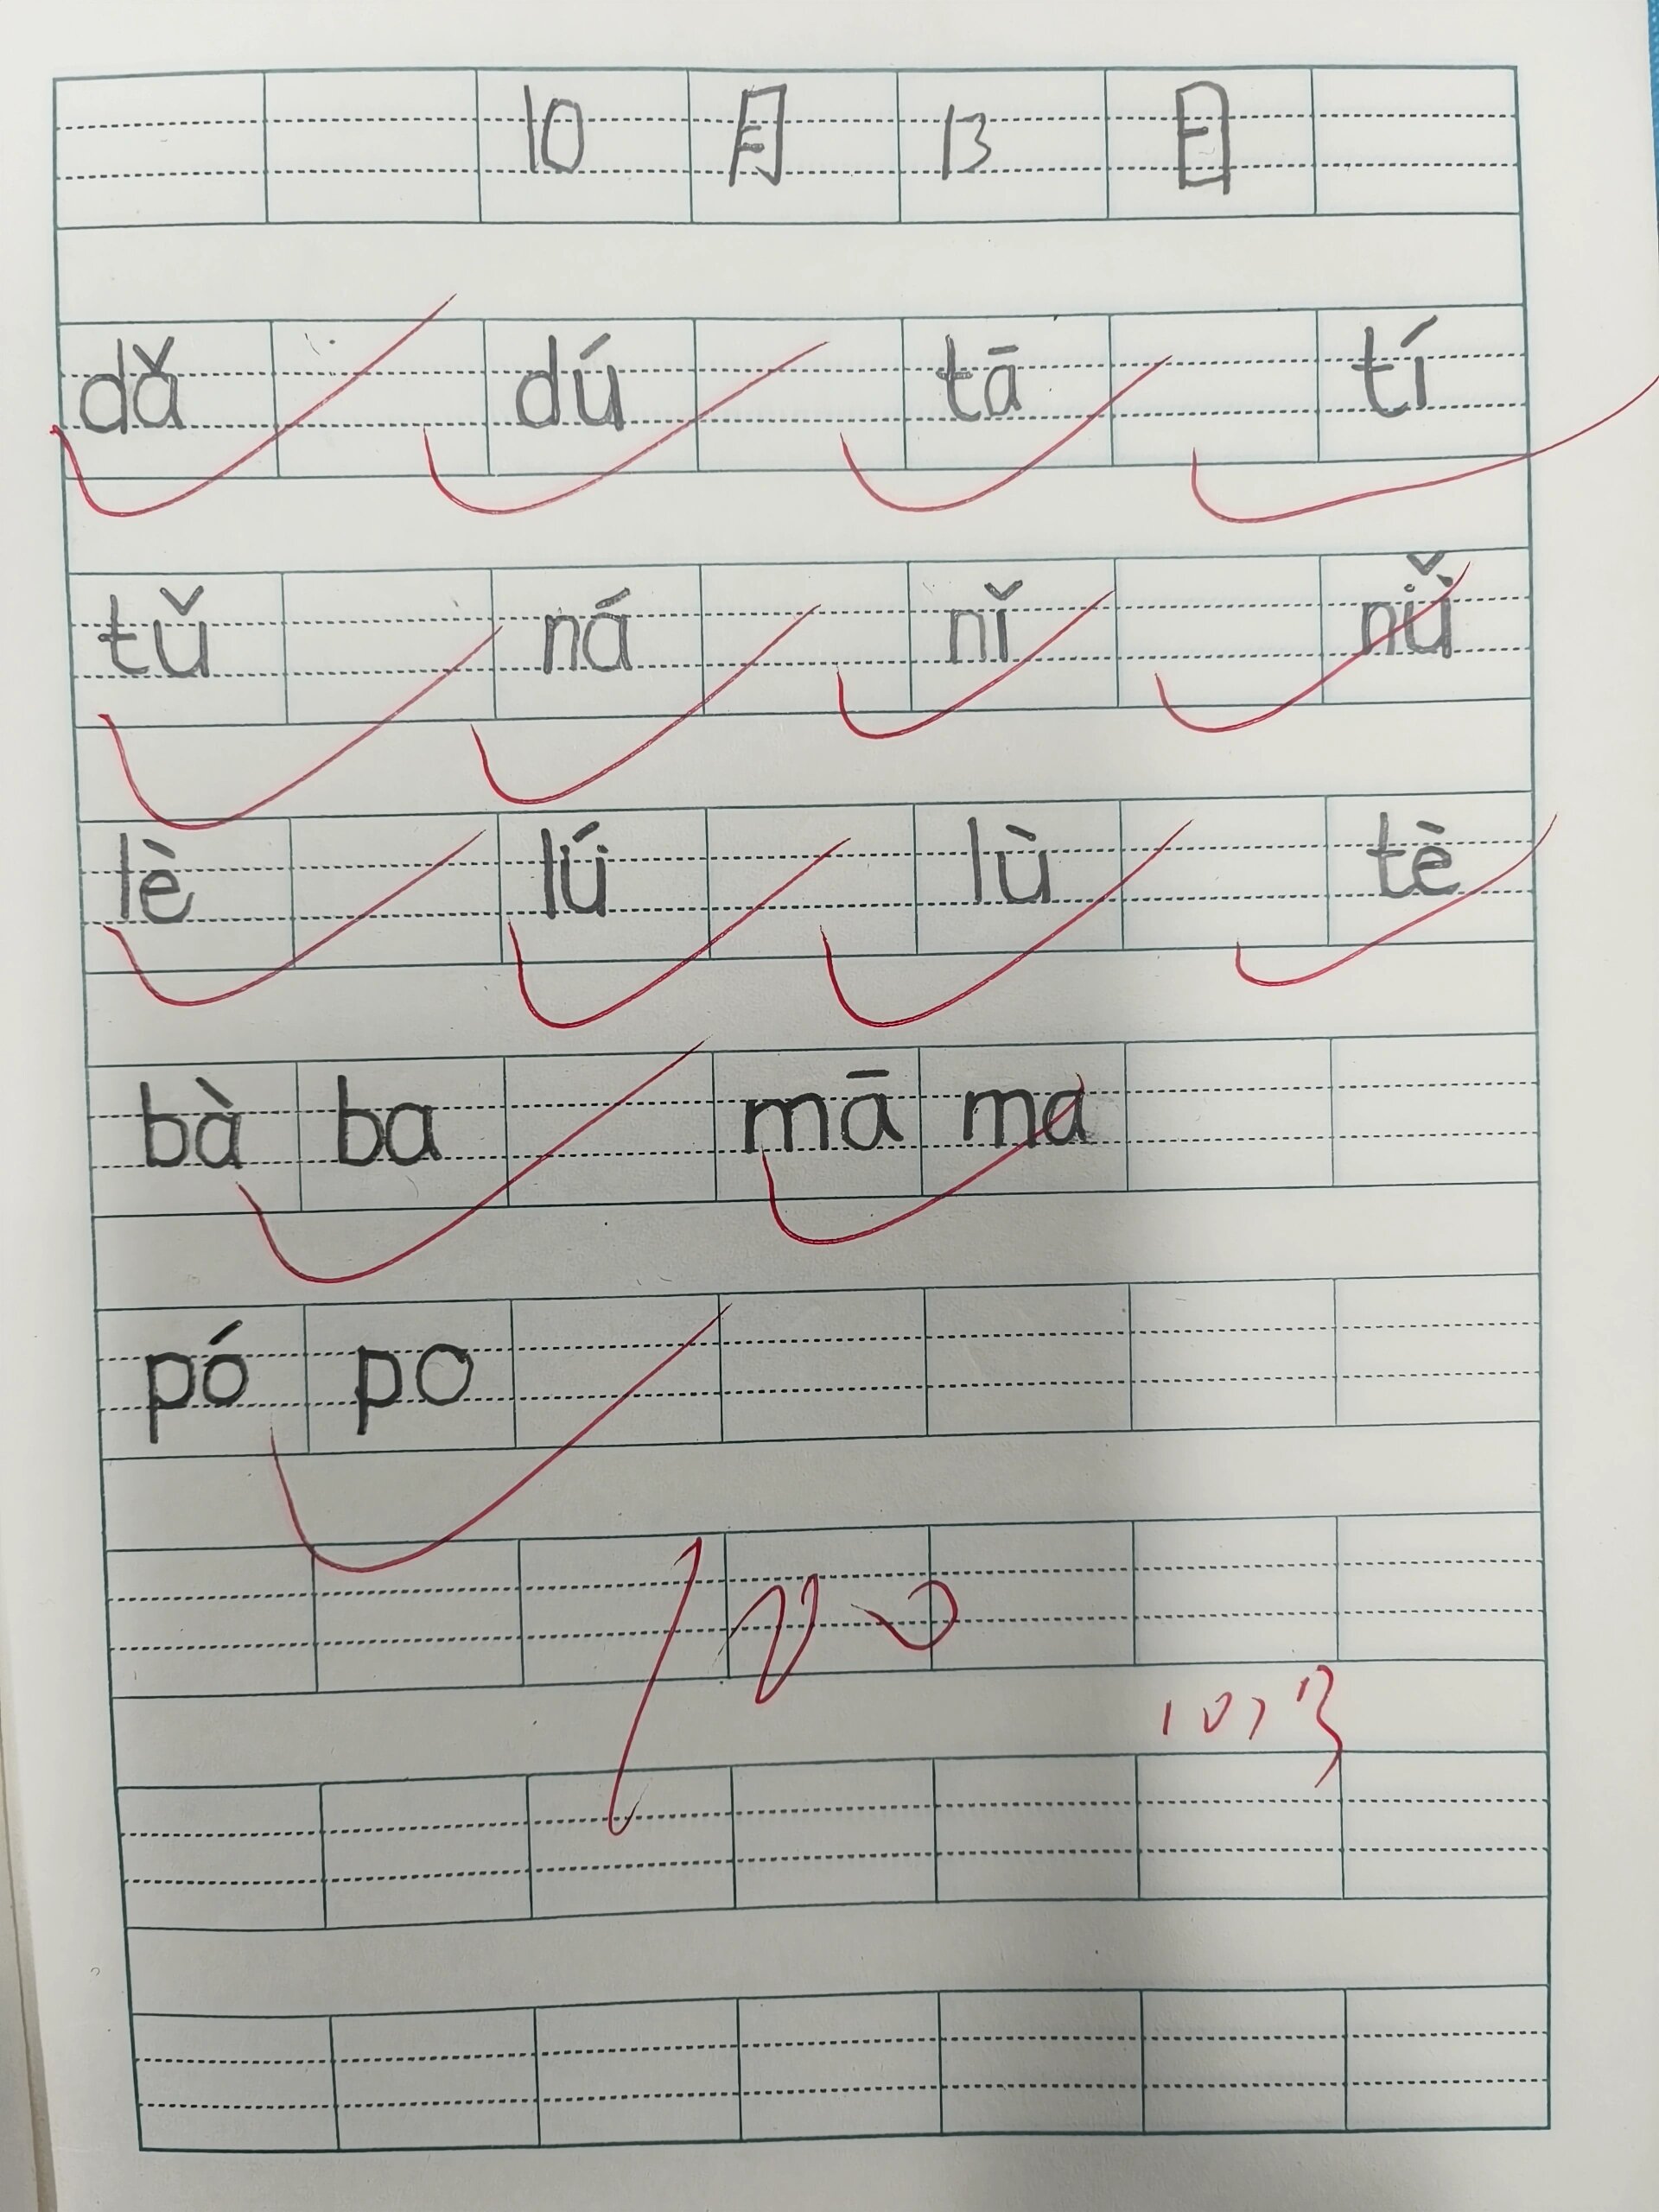 10 月 13 日
dǎ dú tā tí
tǔ ná nǐ nǚ
lè lǘ lù tè
bà ba mā ma
pó po
100
10,13